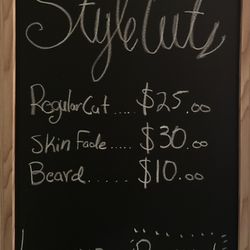 Style Cuts
Regular Cut..... $25.00
Skin Fade..... $30.00
Beard...... $10.00